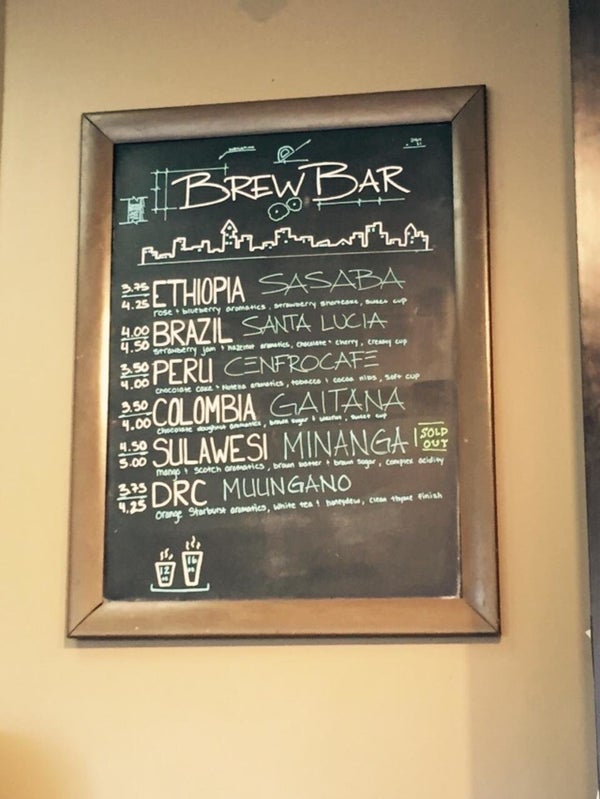 BREW BAR
3.75 ETHIOPIA SASABA
4.25 rose + blueberry aromatics, strawberry shortcake, sweet cup
4.00 BRAZIL SANTA LUCIA
4.50 strawberry jam + hazelnut aromatics, chocolate + cherry, creamy cup
3.50 PERU CENFROCAFE
4.00 chocolate cake + Nutella aromatics, tobacco + cacao nibs, soft cup
3.50 COLOMBIA GAITANA
4.00 chocolate doughnut aromatics, brown sugar + walnut, sweet cup
4.50 SULAWESI MINANGA SOLD OUT
5.00 mango + scotch aromatics, brown butter + brown sugar, complex acidity
3.75 DRC MUUNGANO
4.25 orange Starburst aromatics, white tea + honeydew, clean thyme finish
12 oz 16 oz